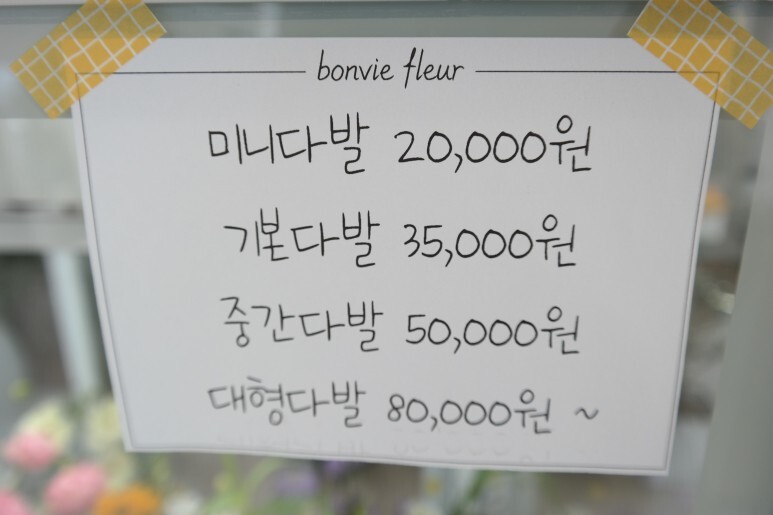 bonvie fleur
미니다발 20,000원
기본다발 35,000원
중간다발 50,000원
대형다발 80,000원 ~